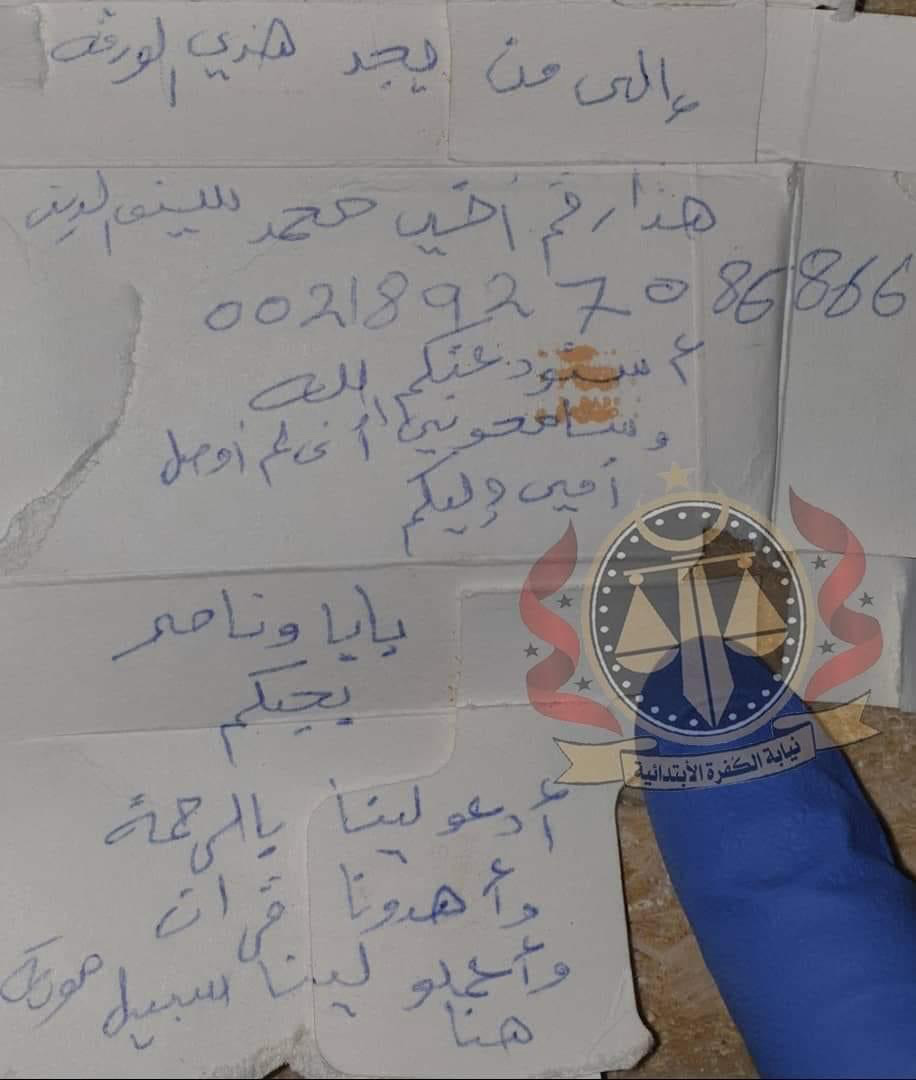 إلى من يجد هذي لورقه
هذا رقم أخي محمد سيف لدين
00218927086866
أستودعتكم الله
وسامحوني أنى لم أوصل
أمي إليكم
بابا وناصر
يحبكم
أدعو لينا بالرحمة
وأهدونا قرأن
وأعملو لينا سبيل
هنا
نيابة الكفرة الأبتدائية